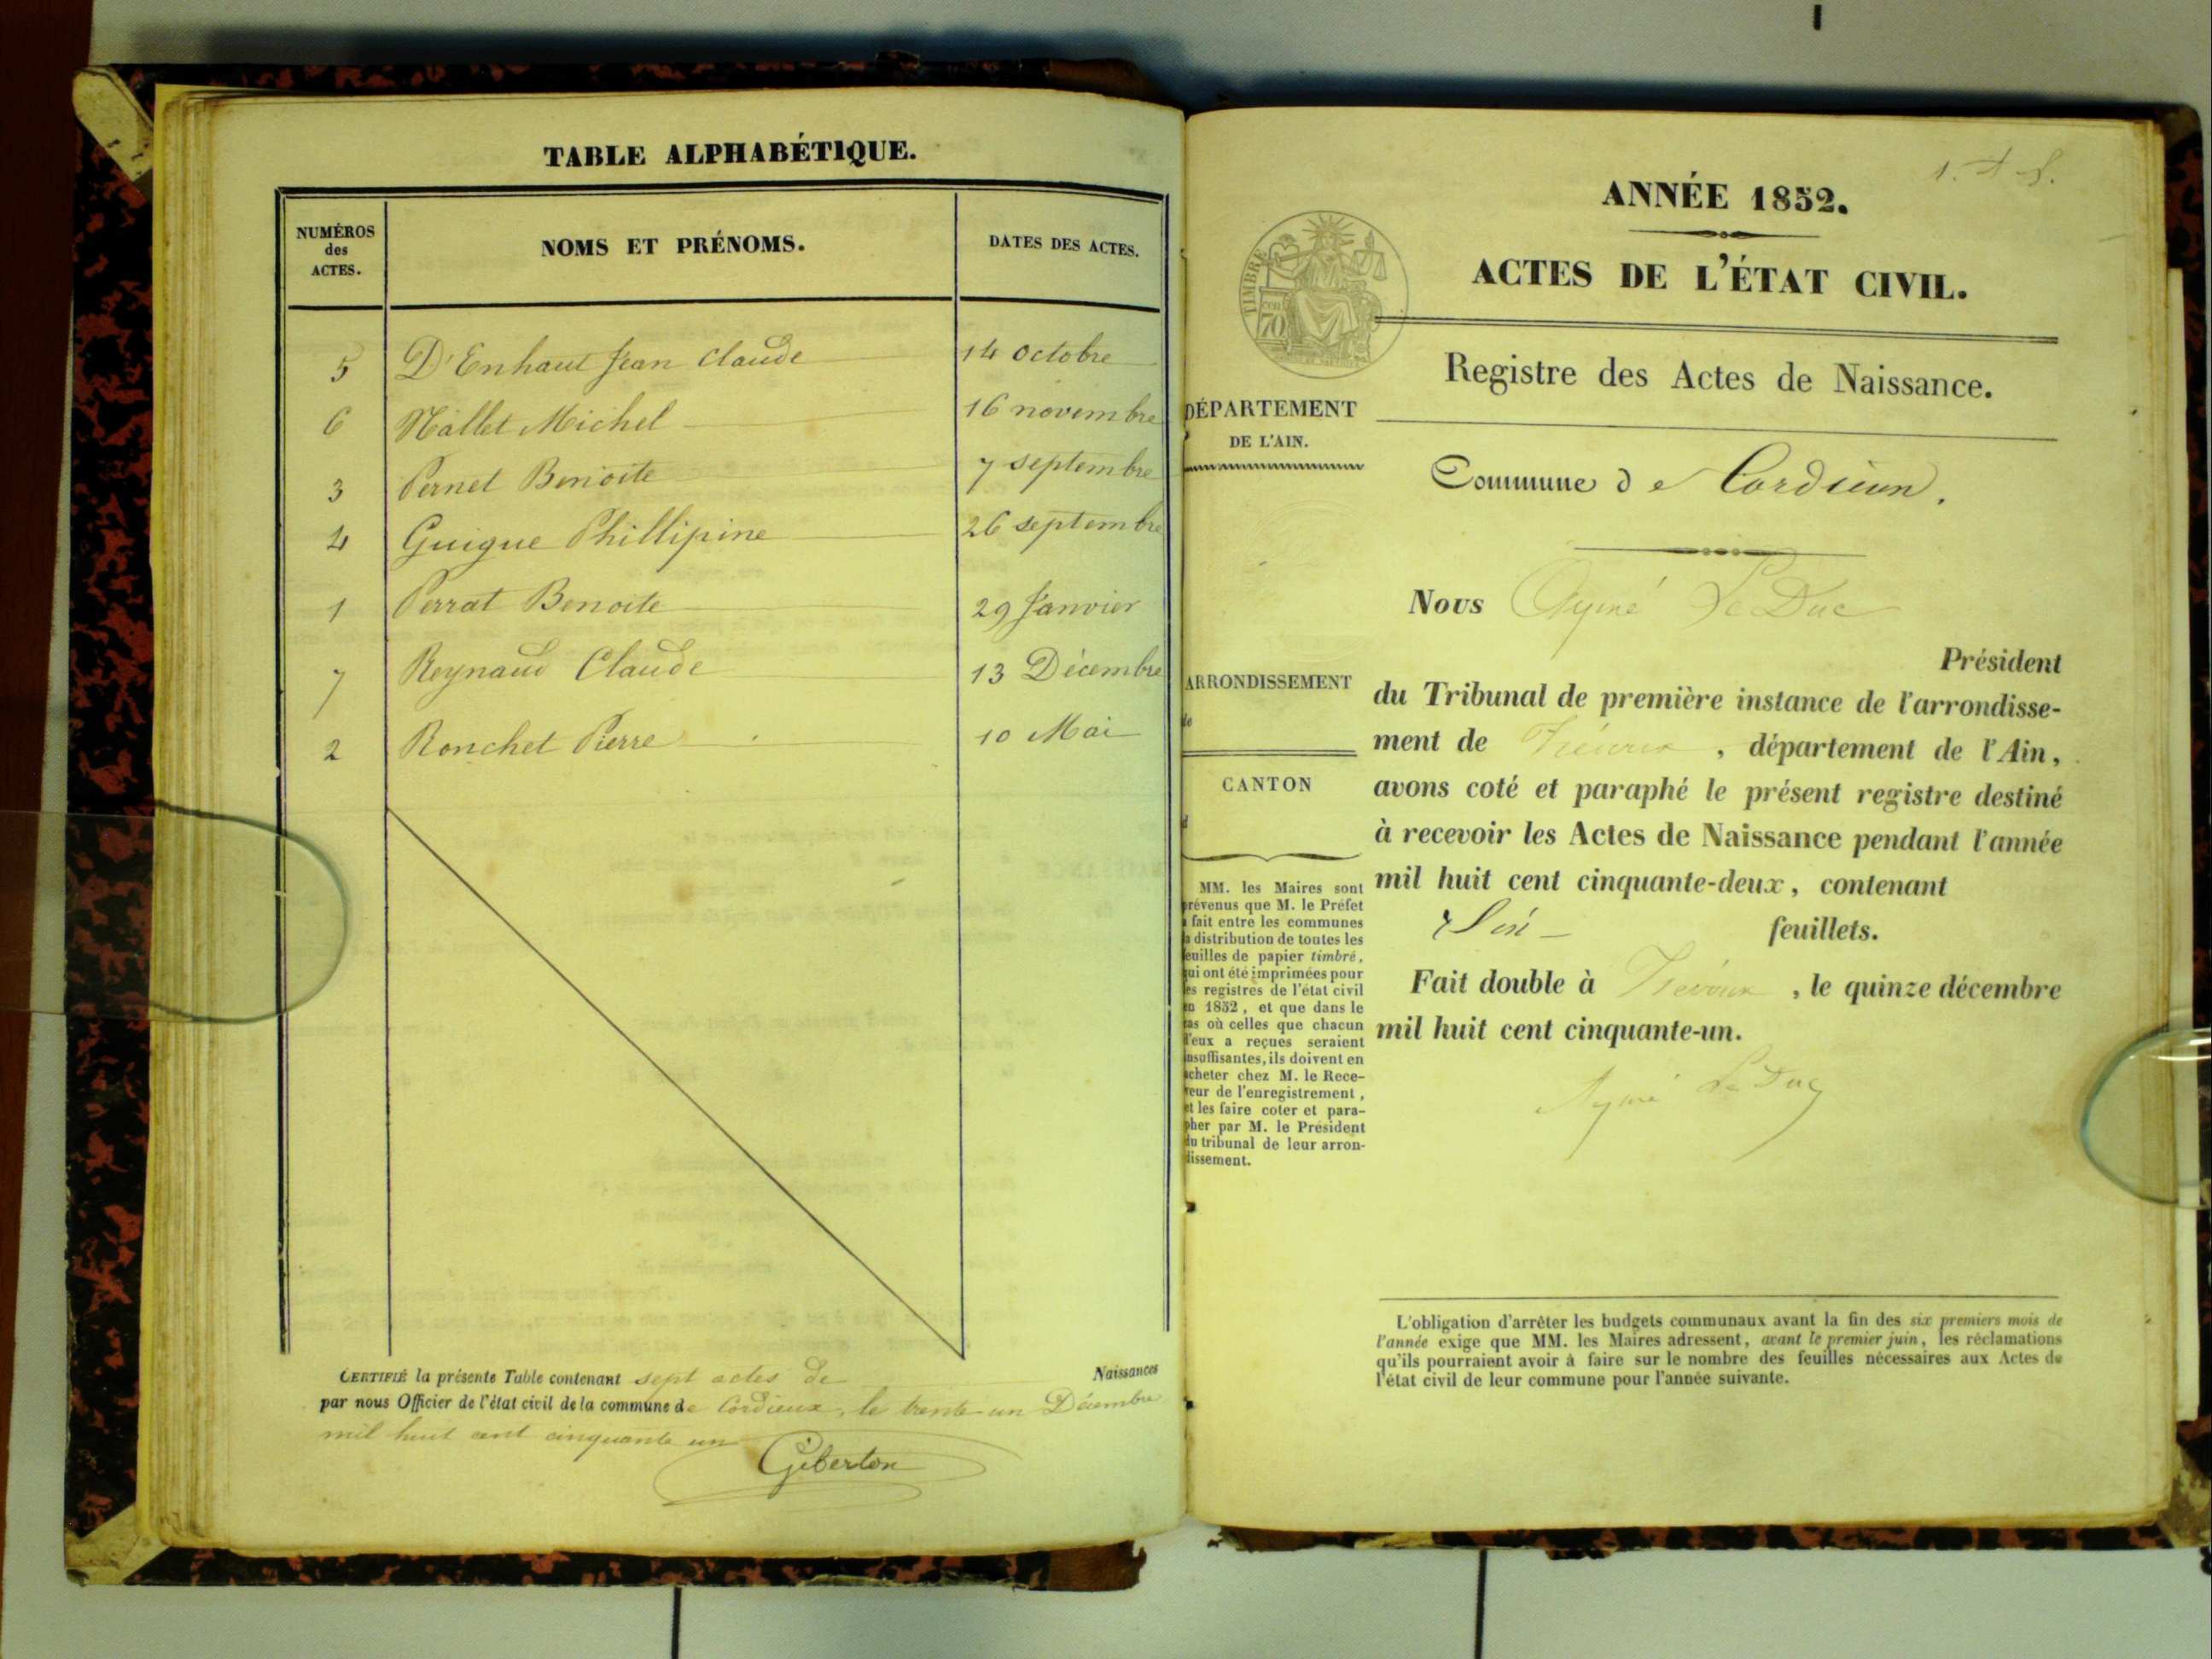 TABLE ALPHABÉTIQUE.
NUMÉROS des ACTES.
NOMS ET PRÉNOMS.
DATES DES ACTES.
5 D'Enhaut Jean Claude 14 octobre
6 Mallet Michel 16 novembre
3 Pernet Benoite 7 septembre
4 Guigue Phillipine 26 septembre
1 Perrat Benoite 29 Janvier
7 Reynaud Claude 13 Décembre
2 Ronchet Pierre 10 Mai
CERTIFIÉ la présente Table contenant sept actes de Naissances
par nous Officier de l'état civil de la commune de Cordieux, le trente-un Décembre
mil huit cent cinquante un
Giberton
ANNÉE 1852.
ACTES DE L'ÉTAT CIVIL.
TIMBRE
70
Registre des Actes de Naissance.
DÉPARTEMENT
DE L'AIN.
Commune de Cordieux.
Nous Aymé Le Duc
Président
ARRONDISSEMENT
du Tribunal de première instance de l'arrondisse-
ment de Trévoux, département de l'Ain,
CANTON
avons coté et paraphé le présent registre destiné
à recevoir les Actes de Naissance pendant l'année
mil huit cent cinquante-deux, contenant
feuillets.
Fait double à Trévoux, le quinze décembre
mil huit cent cinquante-un.
Aymé Le Duc
MM. les Maires sont
prévenus que M. le Préfet
a fait entre les communes
la distribution de toutes les
feuilles de papier timbré,
qui ont été imprimées pour
les registres de l'état civil
en 1852, et que dans le
cas où celles que chacun
d'eux a reçues seraient
insuffisantes, ils doivent en
acheter chez M. le Rece-
veur de l'enregistrement,
et les faire coter et para-
pher par M. le Président
du tribunal de leur arron-
dissement.
L'obligation d'arrêter les budgets communaux avant la fin des six premiers mois de
l'année exige que MM. les Maires adressent, avant le premier juin, les réclamations
qu'ils pourraient avoir à faire sur le nombre des feuilles nécessaires aux Actes de
l'état civil de leur commune pour l'année suivante.